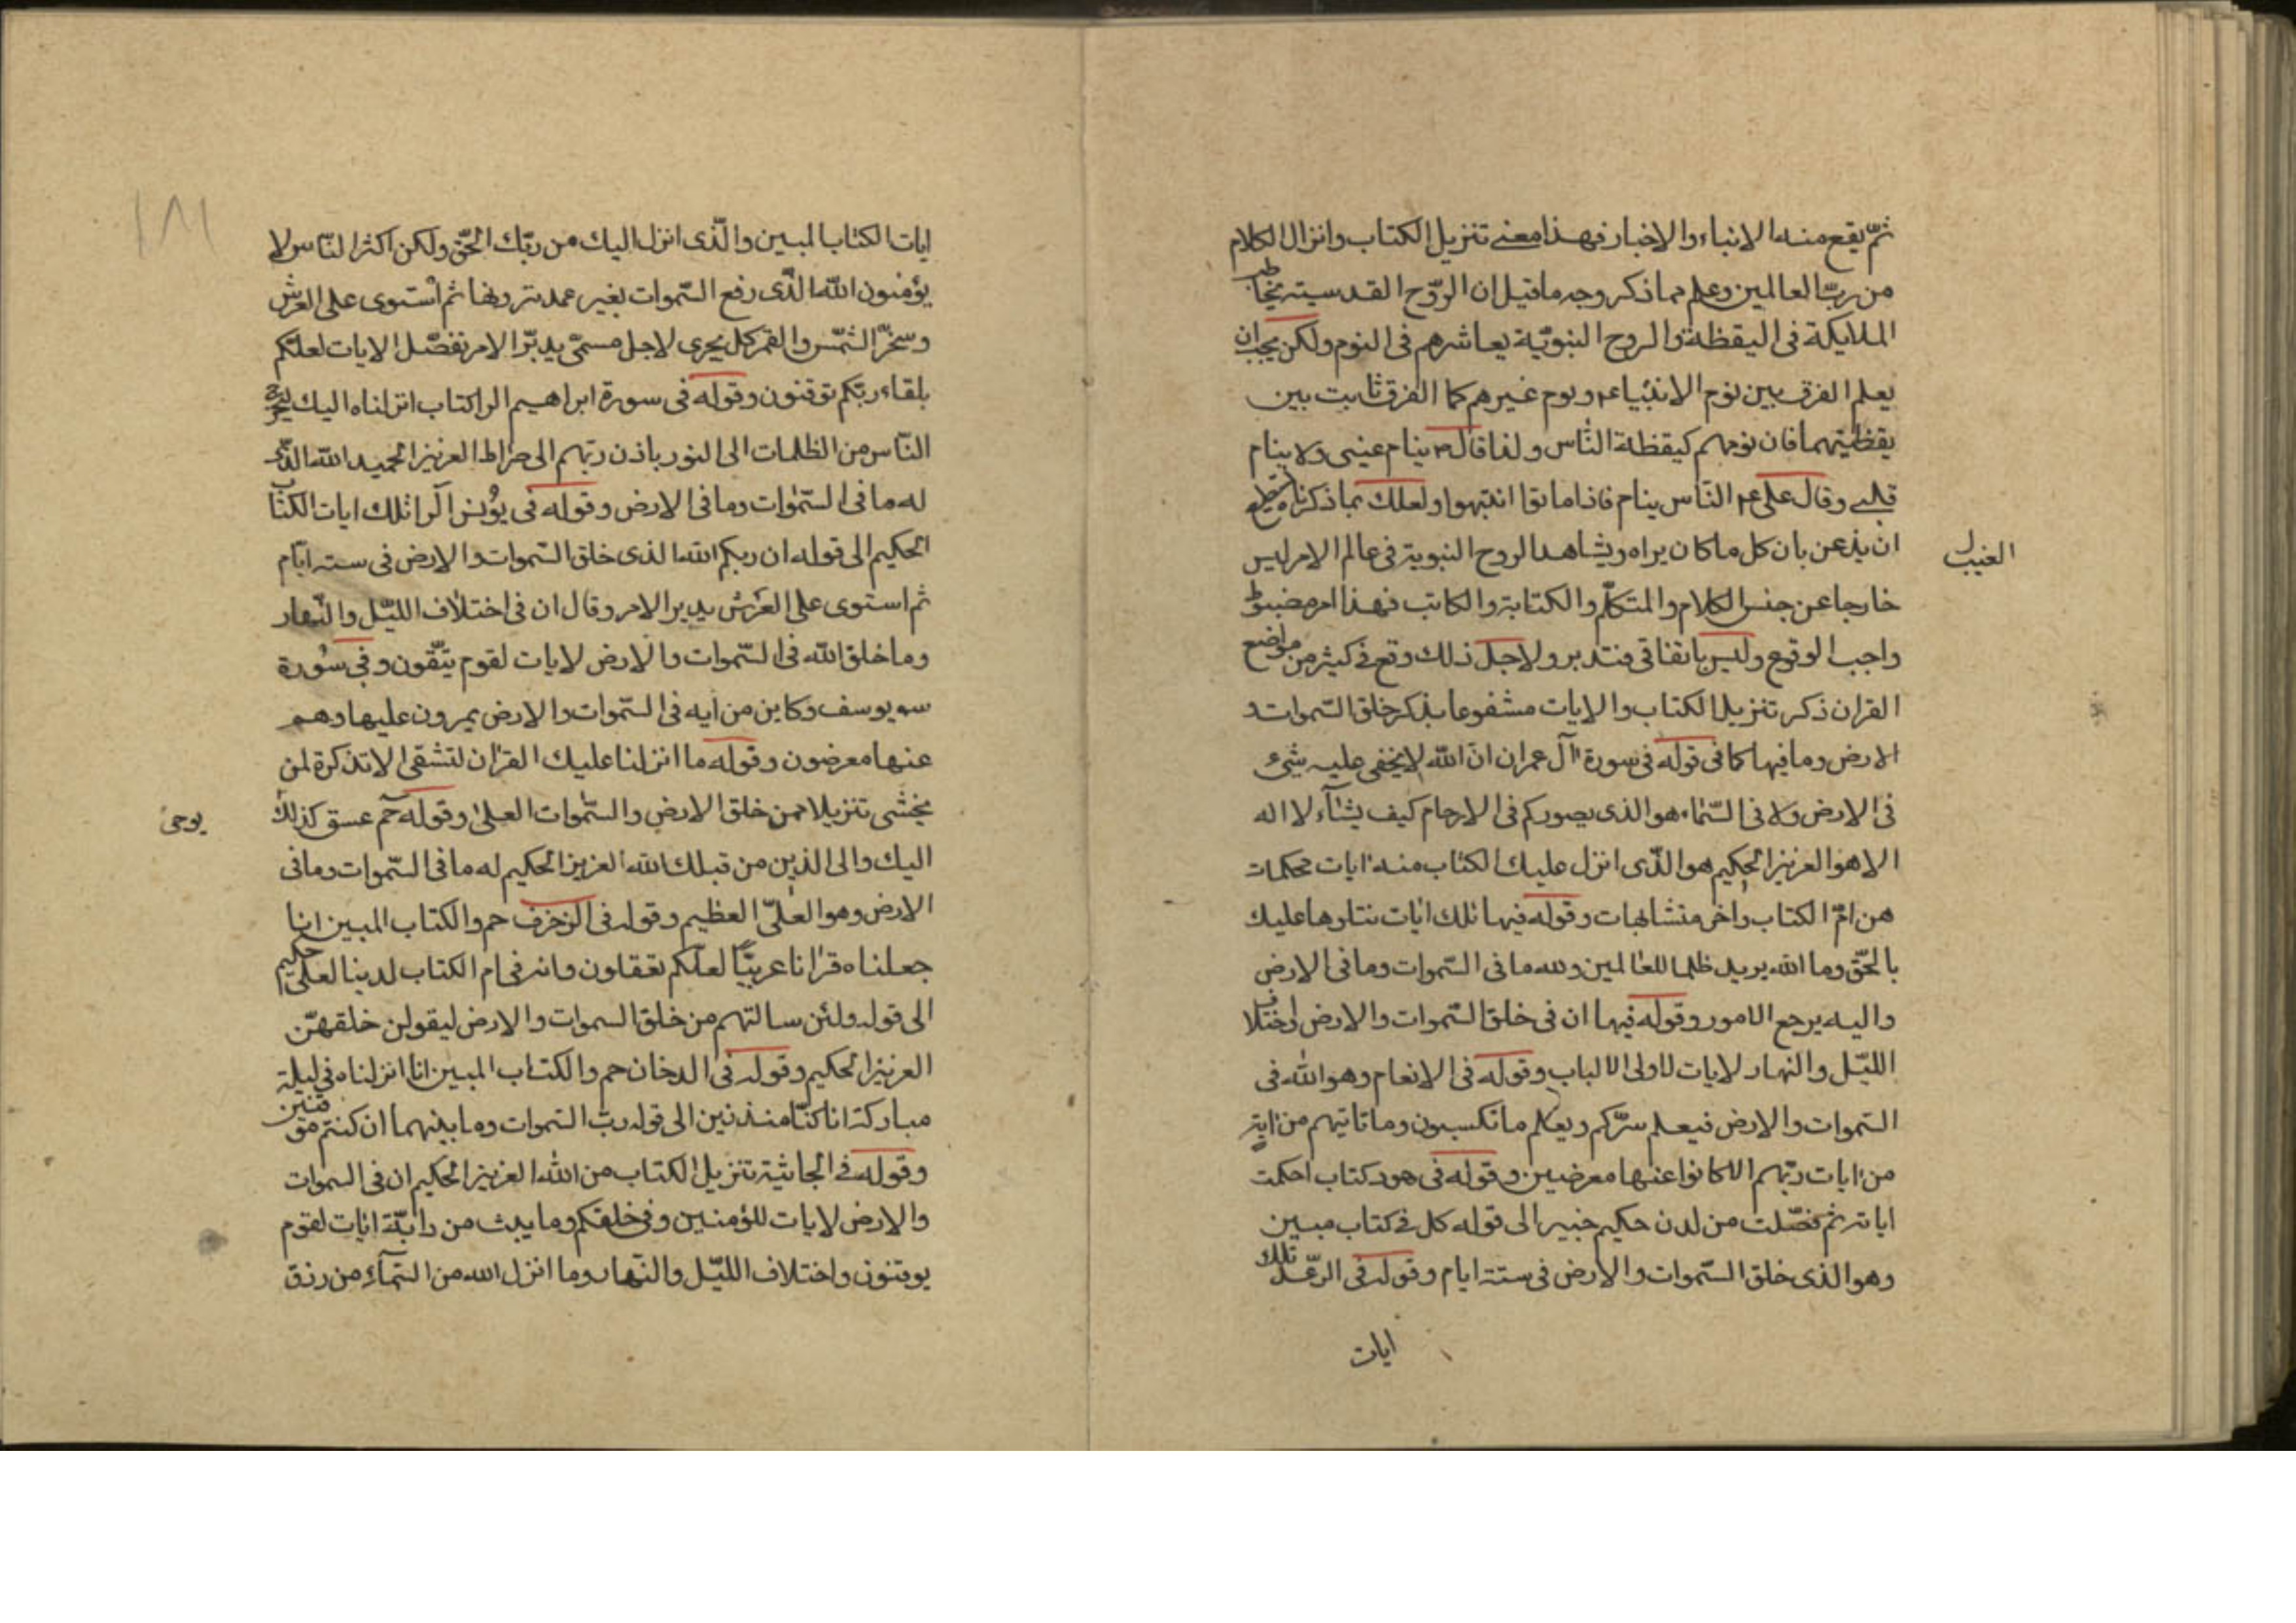 ثمّ يقع منه الانباء والاخبار فهذا معنے تنزيل الكتاب وانزال الكلام
من ربّ العالمين وعلم مما ذكر وجه ما قيل ان الروّح القدسيته يخاطب
الملايكة فى اليقظة والروح النبويّة يعاشرهم فى النوم ولكن يجب ان
يعلم الفرق بين نوم الانبياء عم ونوم غيرهم كما الفرق ثابت بين
يقظتيهما فان نومهم كيقظة النّاس ولذا قال ص ينام عينى ولا ينام
قلبے وقال على عم النّاس ينام فاذا ماتوا انتبهوا ولعلك بما ذكرنا
ان يذعن بان كل ما كان يراه ويشاهد الروح النبوية فى عالم الامر ليس
الغيب ل
خارجا عن جنس الكلام والمتكلّم والكتابة والكاتب فهذا امر مضبوط
واجب الوقوع وليس باتفاقى فتدبر ولاجل ذلك وقع فے كثير من مواضع
القران ذكر تنزيل الكتاب والايات مشفوعا بذكر خلق السّموات و
الارض وما فيها كما فى قوله فى سورة آل عمران انّ الله لا يخفى عليه شئ
فى الارض ولا فى السّماء هو الذى يصوركم فى الارحام كيف يشاء لا اله
الا هو العزيز الحكيم هو الذّى انزل عليك الكتاب منه ايات محكمات
هن امّ الكتاب واخر متشابهات وقوله فيها تلك ايات نتلوها عليك
بالحّق وما الله يريد ظلما للعالمين ولله ما فى السّموات وما فى الارض
واليه يرجع الامور وقوله فيها ان فى خلق السّموات والارض واختلاف
الليّل والنهار لايات لاولى الالباب وقوله فى الانعام وهو الله فى
السّموات والارض فيعلم سرّكم ويعلم ما تكسبون وما تاتيهم من اية
من ايات ربّهم الا كانوا عنها معرضين وقوله فى هود كتاب احكمت
اياته ثم فصّلت من لدن حكيم خبير الى قوله كل فے كتاب مبين
وهو الذى خلق السّموات والارض فى ستة ايام وقوله فى الرعّد تلك
ايات
١٨١
ايات الكتاب المبين والّذى انزل اليك من ربّك الحّق ولكن اكثر النّاس لا
يؤمنون الله الذّى رفع السّموات بغير عمد ترونها ثم استوى على العرش
وسخّر الشّمس والقمر كل يجرى لاجل مسمّى يدبّر الامر نفصّل الايات لعلّكم
بلقاء ربّكم توقنون وقوله فى سورة ابراهيم الر كتاب انزلناه اليك لتخرج
النّاس من الظلمات الى النور باذن ربّهم الى صراط العزيز الحميد الله الذّى
له ما فى السّموات وما فى الارض وقوله فى يونس الر تلك ايات الكتاب
الحكيم الى قوله ان ربكم الله الذى خلق السّموات والارض فى سته ايّام
ثم استوى على العرش يدبر الامر وقال ان فى اختلاف الليّل والنّهار
وما خلق الله فى السّموات والارض لايات لقوم يتّقون وفى سورة
يوسف وكاين من ايه فى السّموات والارض يمرون عليها وهم
عنها معرضون وقوله ما انزلنا عليك القران لتشقى الا تذكرة لمن
يخشى تنزيلا ممن خلق الارض والسّموات العلى وقوله حم عسق كذلك
يوحى
اليك والى الذين من قبلك الله العزيز الحكيم له ما فى السّموات وما فى
الارض وهو العلىّ العظيم وقوله فى الزخرف حم والكتاب المبين انا
جعلناه قرانا عربيّا لعلّكم تعقلون وانه فى ام الكتاب لدينا لعلى حكيم
الى قوله ولئن سالتهم من خلق السموات والارض ليقولن خلقهنّ
العزيز الحكيم وقوله فى الدخان حم والكتاب المبين انا انزلناه فى ليلة
مباركة انا كنّا منذرين الى قوله ربّ السّموات وما بينهما ان كنتم موقنين
وقوله فے الجاثية تنزيل الكتاب من الله العزيز الحكيم ان فى السموات
والارض لايات للمؤمنين وفى خلقكم وما يبث من دابّة ايات لقوم
يوقنون واختلاف الليّل والنّهار وما انزل الله من السّمآء من رزق